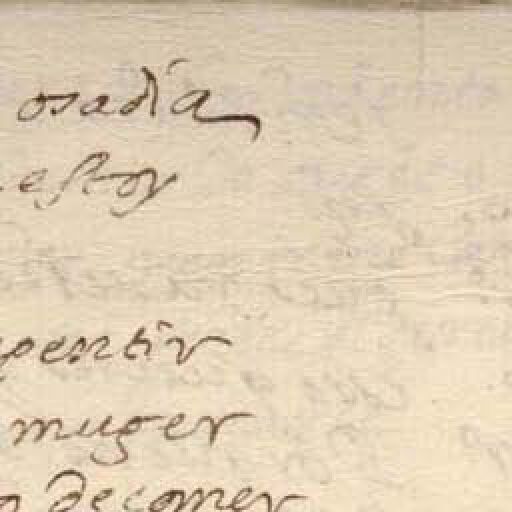 osadia
estoy
pentir
muger
de comer